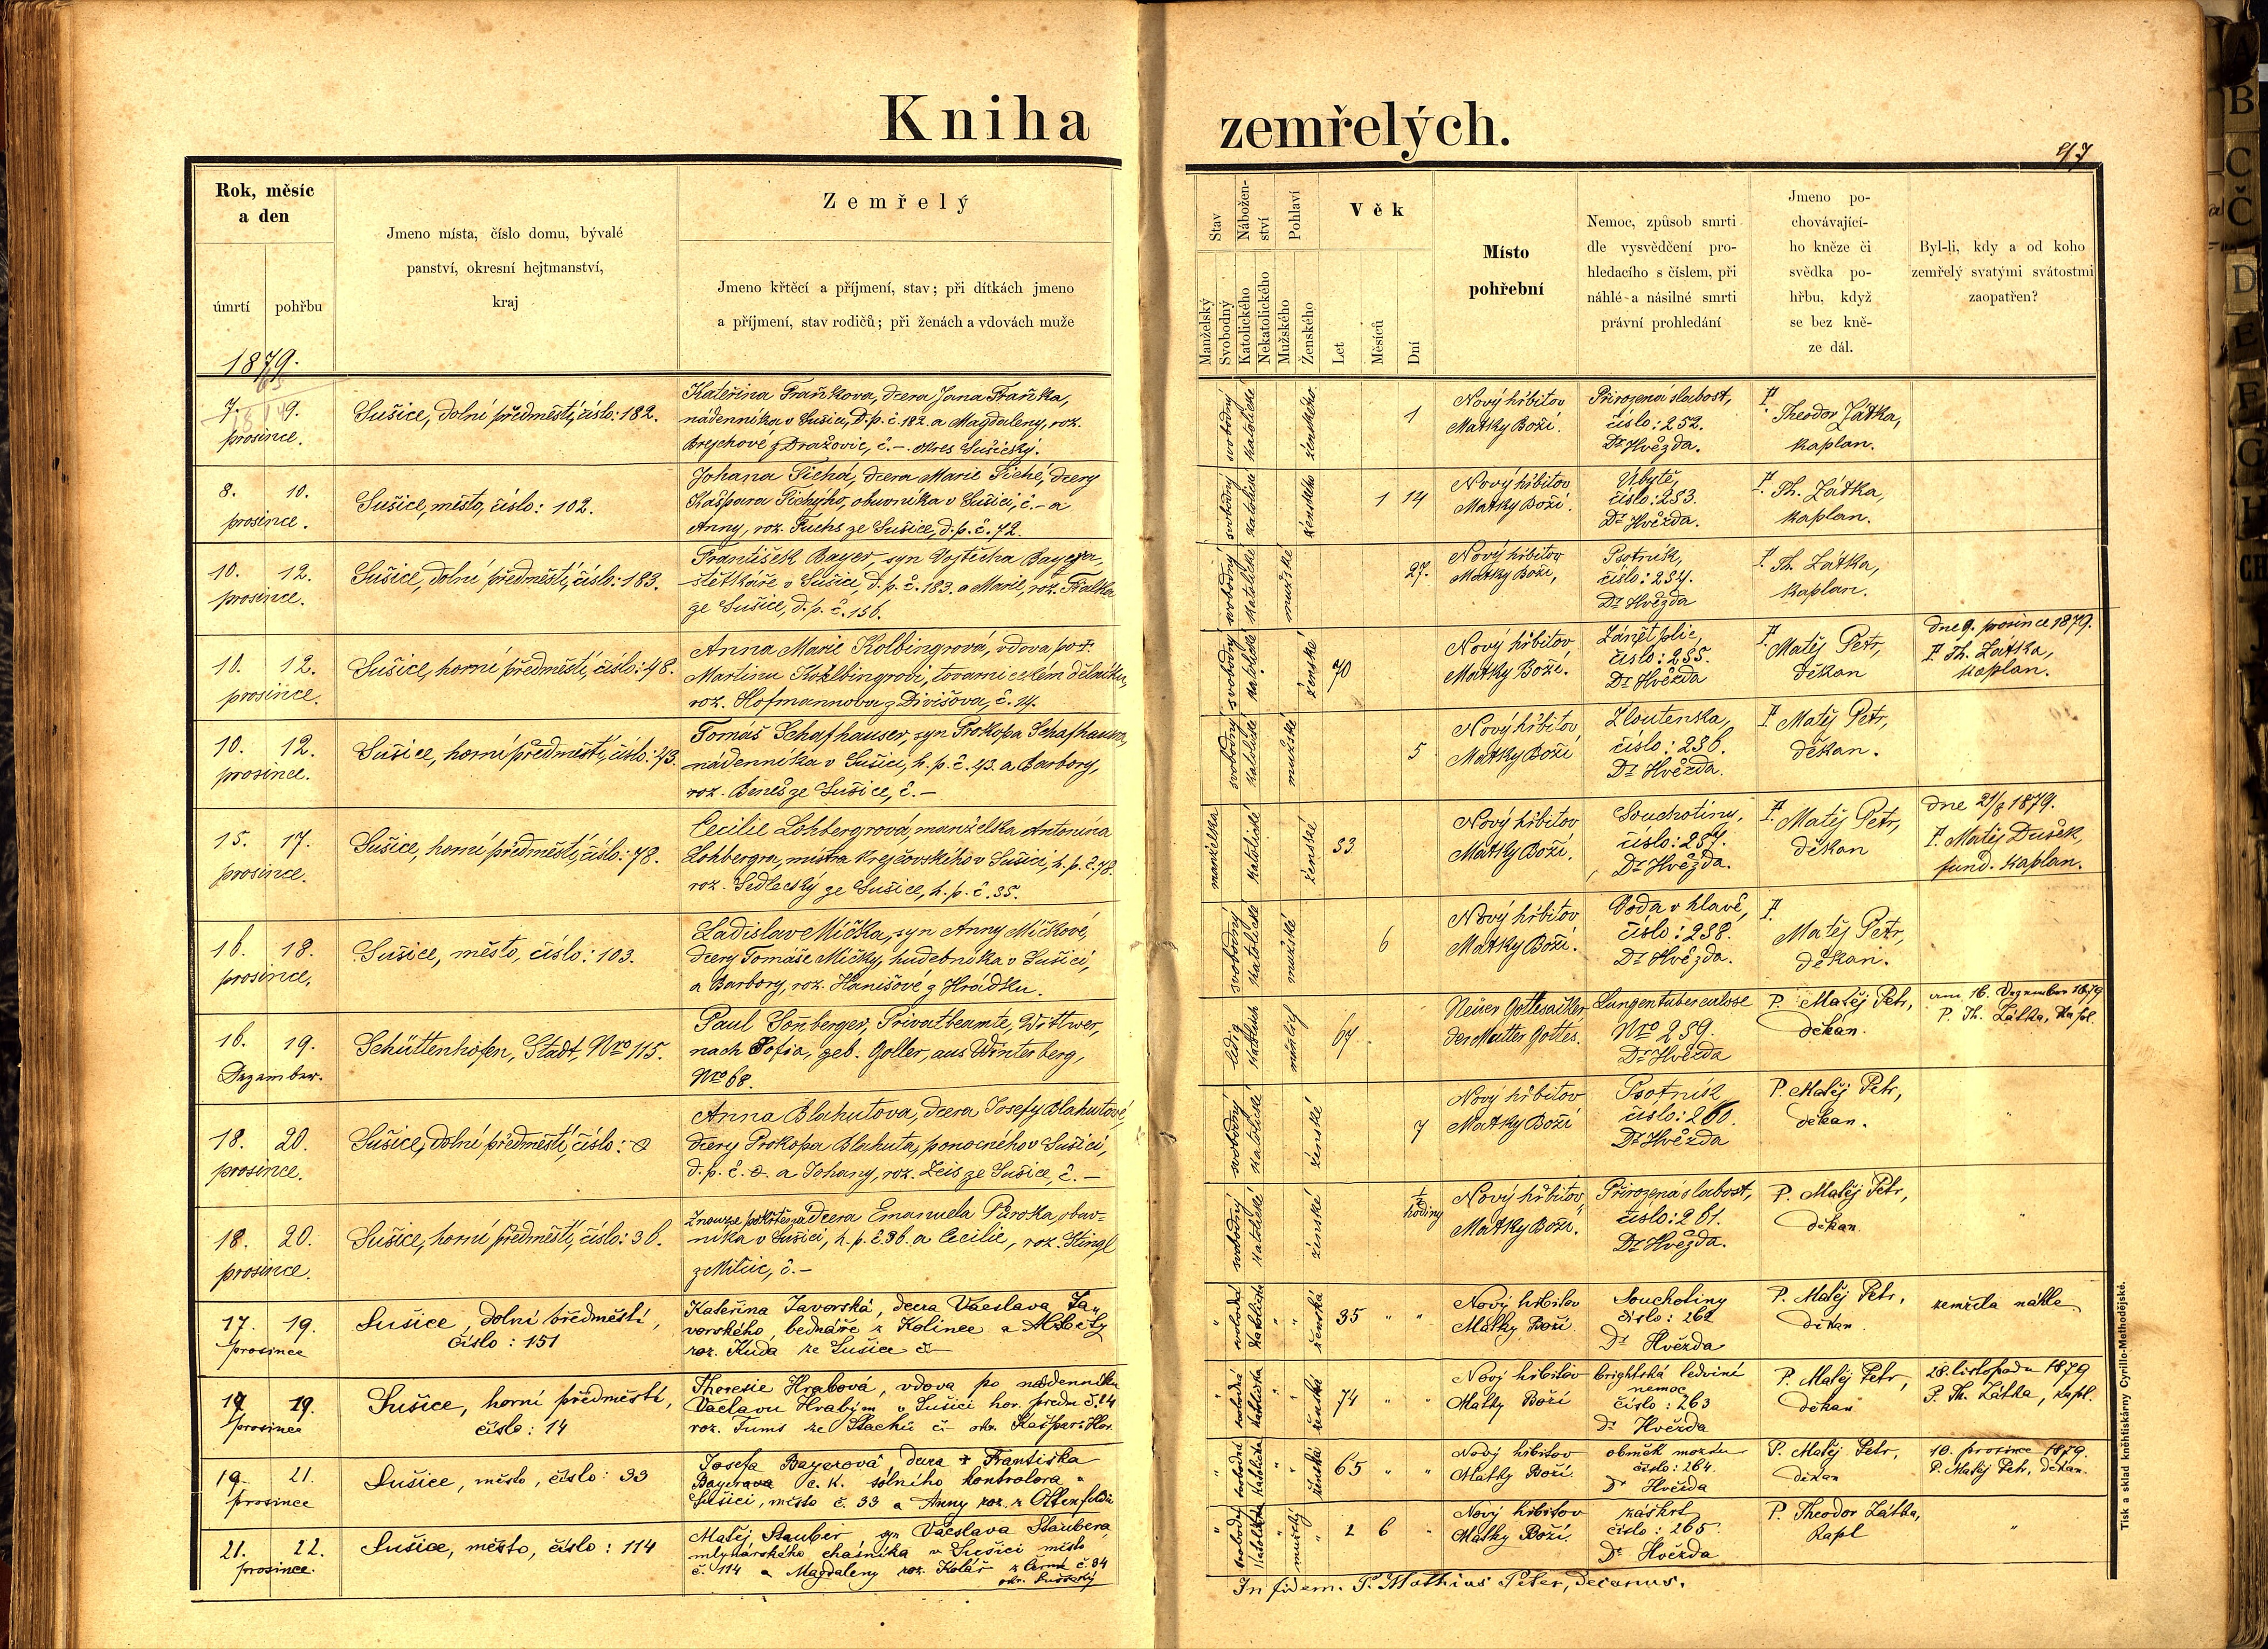 Kniha zemřelých.
97
Rok, měsíc a den
úmrtí
pohřbu
Jmeno místa, číslo domu, bývalé
panství, okresní hejtmanství,
kraj
Zemřelý
Jmeno křtěcí a příjmení, stav; při dítkách jmeno
a příjmení, stav rodičů; při ženách a vdovách muže
Stav
Manželský
Svobodný
Nábožen-
ství
Katolického
Nekatolického
Pohlaví
Mužského
Ženského
Věk
Let
Měsíců
Dní
Místo
pohřební
Nemoc, způsob smrti
dle vysvědčení pro-
hledacího s číslem, při
náhlé a násilné smrti
právní prohledání
Jmeno po-
chovávající-
ho kněze či
svědka po-
hřbu, když
se bez kně-
ze dál.
Byl-li, kdy a od koho
zemřelý svatými svátostmi
zaopatřen?
1879.
7. 9.
prosince.
Sušice, dolní předměstí, číslo: 182.
Kateřina Fraňkova, dcera Jana Fraňka,
nádenníka v Sušici, d. p. č. 182. a Magdaleny, roz.
Brejchové z Dražovic, č. – okres Sušický.
svobodný katolické ženského
1
Nový hřbitov
Matky Boží.
Přirozená slabost,
číslo: 252.
Dr Hvězda.
P.
Theodor Zátka,
kaplan.
8. 10.
prosince.
Sušice, město, číslo: 102.
Johana Tichá, dcera Marie Tiché, dcery
Kašpara Tichýho, obuvníka v Sušici, č. – a
Anny, roz. Fuchs ze Sušice, d. p. č. 72.
svobodný katolické ženského
1 14
Nový hřbitov
Matky Boží.
Úbytě,
číslo: 253.
Dr Hvězda.
P. Th. Zátka,
kaplan.
10. 12.
prosince.
Sušice, dolní předměstí, číslo: 183.
František Bayer, syn Vojtěcha Bayera,
štětkáře v Sušici, d. p. č. 183. a Marie, roz. Fialka
ze Sušice, d. p. č. 156.
svobodný katolické mužské
27.
Nový hřbitov
Matky Boží,
Psotník,
číslo: 254.
Dr Hvězda
P. Th. Zátka,
kaplan.
10. 12.
prosince.
Sušice, horní předměstí, číslo: 48.
Anna Marie Kolbingrová, vdova po †
Martinu Kolbingrovi, tovarnickém dělníku,
roz. Hofmannova z Divišova, č. 14.
svobodný katolické ženské
70
Nový hřbitov
Matky Boží.
Zánět plic,
číslo: 255.
Dr Hvězda
P.
Matěj Petr,
děkan
dne 9. prosince 1879.
P. Th. Zátka,
kaplan.
10. 12.
prosince.
Sušice, horní předměstí, číslo: 43.
Tomáš Schafhauser, syn Prokopa Schafhausra,
nádenníka v Sušici, h. p. č. 43. a Barbory,
roz. Beneš ze Sušice, č. –
svobodný katolické mužské
5
Nový hřbitov
Matky Boží
Žloutenka,
číslo: 256.
Dr Hvězda.
P. Matěj Petr,
děkan.
15. 17.
prosince.
Sušice, horní předměstí, číslo: 78.
Cecilie Lohbergrová, manželka Antonína
Lohbergra, mistra krejčovského v Sušici, h. p. č. 78.
roz. Sedlecký ze Sušice, h. p. č. 35.
manželka katolické ženské
53
Nový hřbitov
Matky Boží.
Souchotiny,
číslo: 257.
Dr Hvězda.
P. Matěj Petr,
děkan
dne 21/8 1879.
P. Matěj Dušek,
fund. kaplan.
16. 18.
prosince,
Sušice, město, číslo: 103.
Ladislav Mička, syn Anny Mičkové,
dcery Tomáše Mičky, hudebníka v Sušici,
a Barbory, roz. Hanišové z Hrádku.
svobodný katolické mužské
6
Nový hřbitov
Matky Boží.
Voda v hlavě,
číslo: 258.
Dr Hvězda.
P.
Matěj Petr,
děkan.
16. 19.
Dezember.
Schüttenhofen, Stadt, Nro 115.
Paul Sonberger, Privatbeamte, Wittwer,
nach Sofia, geb. Goller, aus Winterberg,
Nro 68.
ledig
67
Neuer Gottesacker
der Mutter Gottes.
Lungentuberculose
Nro 259.
Dr Hvězda
P. Matěj Petr,
děkan.
am 16. Dezember 1879
P. Th. Zátka, kapl.
18. 20.
prosince.
Sušice, dolní předměstí, číslo: 0
Anna Blahutova, dcera Josefy Blahutové,
dcery Prokopa Blahuta, ponocného v Sušici,
d. p. č. 0. a Johany, roz. Zeis ze Sušice, č. –
svobodný katolické ženské
7
Nový hřbitov
Matky Boží
Psotník
číslo: 260.
Dr Hvězda
P. Matěj Petr,
děkan.
"
18. 20.
prosince.
Sušice, horní předměstí, číslo: 36.
Znouze pokřtěna dcera Emanuela Půroka, obuv-
níka v Sušici, h. p. č. 36. a Cecilie, roz. Stingl
z Milčic, č. –
svobodný katolické ženské
1/2
hodiny
Nový hřbitov
Matky Boží.
Přirozená slabost,
číslo: 261.
Dr Hvězda.
P. Matěj Petr,
děkan.
"
17. 19.
prosince
Sušice, dolní předměstí,
číslo: 151
Kateřina Javorská, dcera Václava Ja-
vorského, bednáře z Kolince a Alžběty
roz. Kuda ze Sušice č –
" svobodná katolická " " ženská
35 " "
Nový hřbitov
Matky Boží
Souchotiny
číslo: 262
Dr Hvězda
P. Matěj Petr,
děkan
zemřela náhle
17 19.
prosince
Sušice, horní předměstí,
číslo: 14
Theresie Hrabová, vdova po nádenníku
Václavu Hrabým v Sušici hor. předm č. 14
roz. Tums ze Stachů č – okr. Kašpar. Hor.
" svobodná katolická " ženská
74 " "
Nový hřbitov
Matky Boží
brightská ledviní
nemoc
číslo: 263
Dr Hvězda
P. Matěj Petr,
děkan
28. listopadu 1879
P. Th. Zátka, kapl.
19. 21.
prosince
Sušice, město, číslo: 33
Josefa Bayerová dcera † Františka
Bayerova c. k. solního kontrolora v
Sušici, město č. 33 a Anny roz. z Ottenfeldu
" svobodná katolická " ženská
65 " "
Nový hřbitov
Matky Boží.
obměk mozku
číslo: 264.
Dr Hvězda
P. Matěj Petr,
děkan
10. prosince 1879.
P. Matěj Petr, děkan.
21. 22.
prosince.
Sušice, město, číslo: 114
Matěj Stauber, syn Václava Staubera
mlynářského chasníka v Sušici město
č. 114 a Magdaleny roz. Kolář z Černé č. 34
okr. Sušický
" svobodný katolické " mužský "
2 6 "
Nový hřbitov
Matky Boží.
záškrt
číslo: 265.
Dr Hvězda
P. Theodor Zátka,
kapl
"
In fidem. P. Mathias Peter, decanus.
Tisk a sklad kněhtiskárny Cyrillo-Methodějské.
B
C
Č
D
E
F
G
H
CH